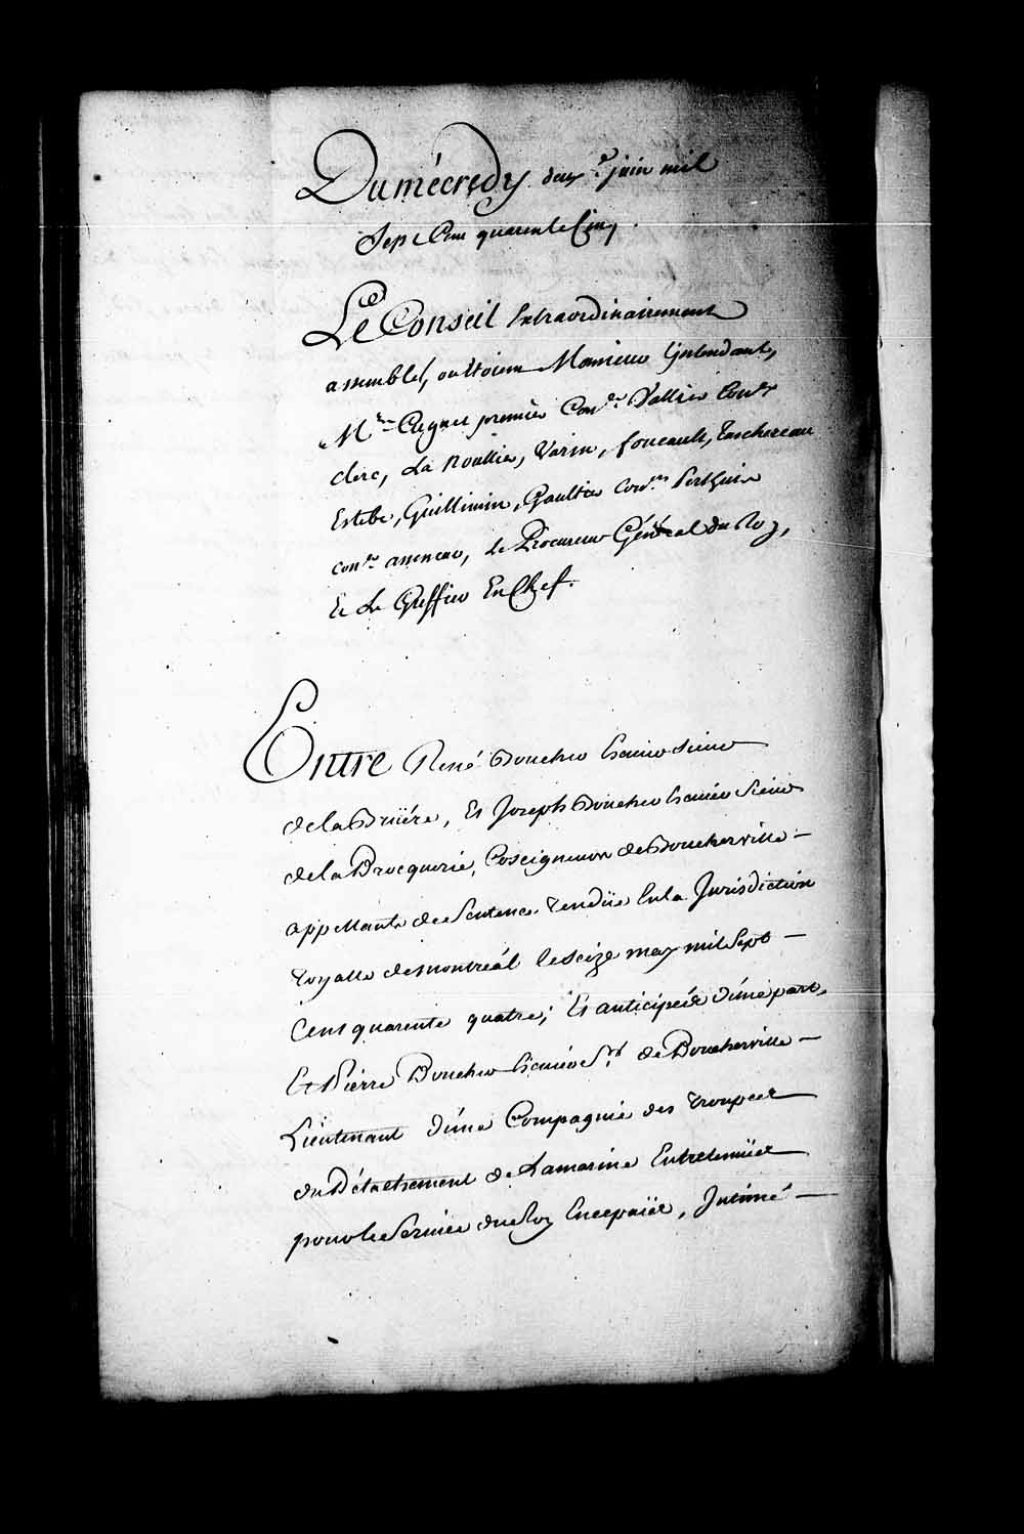 Du mécredy deux.e juin mil
Sept Cent quarente Cinq.
Le Conseil Extraordinairement
assemblé, ou Etoient Monsieur L'jntendant,
Mrs. Cugnet premier Conser. Vallier Conser
clerc, La Roullier, Varin, foucault, Taschereau
Estebe, Guillimin, Gaultier Coners Perthuis
coner. assesseur, Le Procureur Général du Roy,
Et Le Greffier En Chef.
Entre René Boucher Ecuier Sieur
de la Bruiére, Et Joseph Boucher Ecuier Sieur
de la Brocquerie, Coseigneurs de Boucherville –
appellants de Sentence Rendüe En la Jurisdiction
royalle de Montréal le Seize may mil Sept –
Cent quarente quatre; Et anticipés d'une part,
Et Pierre Boucher Ecuier Sr. de Boucherville –
Lieutenant d'une Compagnie des Troupes
du Détachement de La marine Entretenües
pour le Service du Roy En ce païs, Intimé –